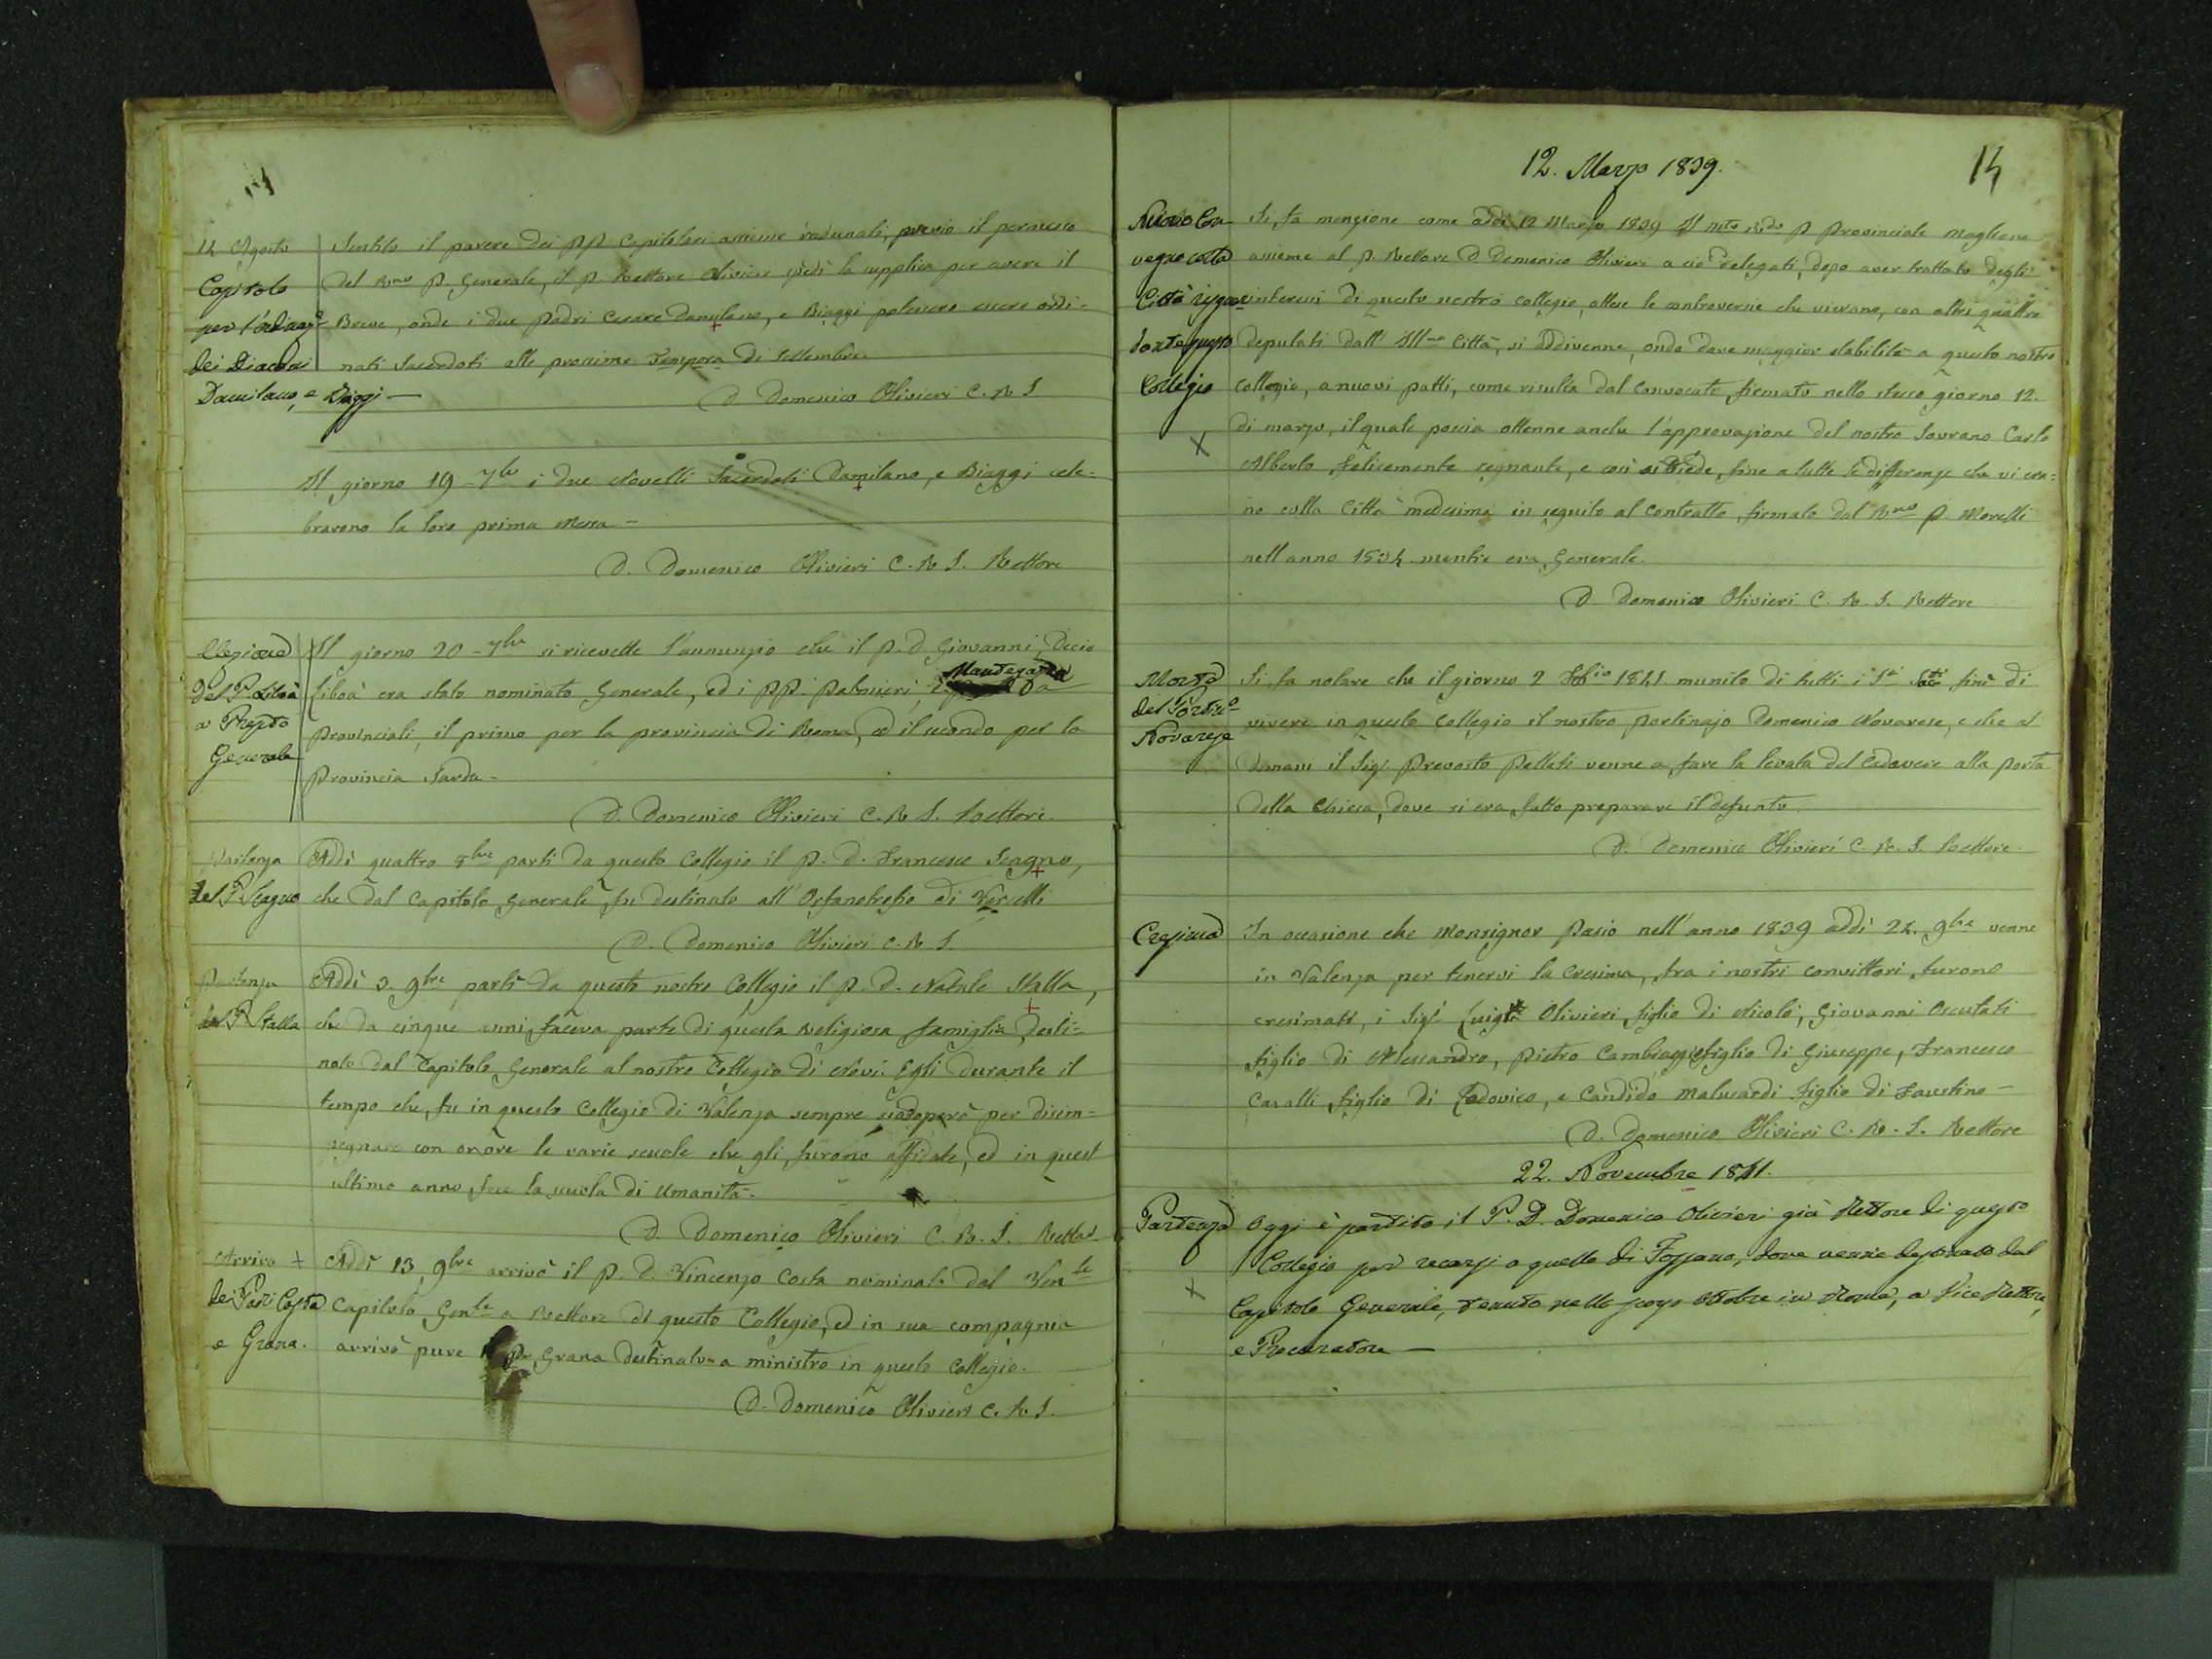 14 Agosto
Capitolo
per l'ordinaze
dei Diaconi
Damilano, e Biaggi —
Sentito il parere dei PP. Capitolari assieme radunati, previo il permesso
del Rmo P. Generale, il P. Rettore Olivieri spedì la supplica per avere il
Breve, onde i due Padri Cesare Damilano, e Biaggi potessero essere ordi-
nati Sacerdoti alle prossime Tempora di Settembre.
D. Domenico Olivieri C. R. S.
Il giorno 19 - 7bre i due Novelli Sacerdoti Damilano, e Biaggi cele-
brarono la loro prima Messa -
D. Domenico Olivieri C. R. S. Rettore
Elezione
del P. Libois
a Prepto
Generale
Il giorno 20 - 7bre si ricevette l'annunzio che il P. D. Giovanni, Decio
Libois era stato nominato Generale, ed i PP. Palmieri, e
Provinciali, il primo per la provincia di Roma, ed il secondo per la
Provincia Sarda -
D. Domenico Olivieri C. R. S. Rettore.
Partenza
del P. Scagno
Addì quattro 8bre partì da questo Collegio il P. D. Francesco Scagno,
che dal Capitolo Generale fu destinato all'Orfanotrofio di Vercelli
D. Domenico Olivieri C. R. S.
Partenza
del P. Stalla
Addì 3. 9bre partì da questo nostro Collegio il P. D. Natale Stalla,
che da cinque anni faceva parte di questa Religiosa famiglia, desti-
nato dal Capitolo Generale al nostro Collegio di Novi: Egli durante il
tempo che fu in questo Collegio di Valenza sempre si adoperò per disim-
pegnare con onore le varie scuole che gli furono affidate, ed in quest
ultimo anno fece la scuola di Umanità.
D. Domenico Olivieri C. R. S. Rettore
Arrivo +
dei Padri Costa
e Grana.
Addì 13, 9bre arrivò il P. D. Vincenzo Costa nominato dal Vente
Capitolo Gente a Rettore di questo Collegio, ed in sua compagnia
arrivò pure Grana destinato a ministro in questo Collegio.
D. Domenico Olivieri C. R. S.
12. Marzo 1839.
Nuovo Con-
Collegio
X
Si fa menzione come addì 12 Marzo 1839 Il Mto Rdo P. Provinciale Maglione
assieme al P. Rettore D. Domenico Olivieri a ciò delegati, dopo aver trattato degli
interessi di questo nostro collegio, attese le controversie che vi erano, con altri quattro
deputati dall'Illma Città, si addivenne, onde dare maggior stabilità a questo nostro
Collegio, a nuovi patti, come risulta dal Convocato, firmato nello stesso giorno 12.
di marzo, il quale poscia ottenne anche l'approvazione del nostro Sovrano Carlo
Alberto felicemente regnante, e così si diede fine a tutte le differenze che vi era-
no colla Città medesima in seguito al contratto firmato dal Rmo P. Morelli
nell'anno 1834. mentre era Generale.
D. Domenico Olivieri C. R. S. Rettore
Morte
Novarese
Si fa notare che il giorno 2 1841 munito di tutti i Sti finì di
vivere in questo Collegio il nostro portinajo Domenico Novarese, e che al
domani il Sigr. Prevosto Pellati venne a fare la levata del Cadavere alla porta
della Chiesa, dove si era fatto preparare il defunto.
D. Domenico Olivieri C. R. S. Rettore.
Cresima
In occasione che Monsignor Pasio nell'anno 1839 addì 24. 9bre venne
in Valenza per tenervi la Cresima, fra i nostri convittori furono
cresimati, i Sigri Luigi Olivieri figlio di Nicolò, Giovanni Oscutati
figlio di Alessandro, Pietro Cambiaggio figlio di Giuseppe, Francesco
Cavalli figlio di Lodovico, e Candido Malusardi figlio di Faustino -
D. Domenico Olivieri C. R. S. Rettore
22. Novembre 1841.
Partenza
X
Oggi è partito il P. D. Domenico Olivieri già Rettore di questo
Collegio per recarsi a quello di Fossano, dove venne destinato dal
Capitolo Generale, tenuto nello scorso Ottobre in Roma, a Vice Rettore,
e Procuratore —